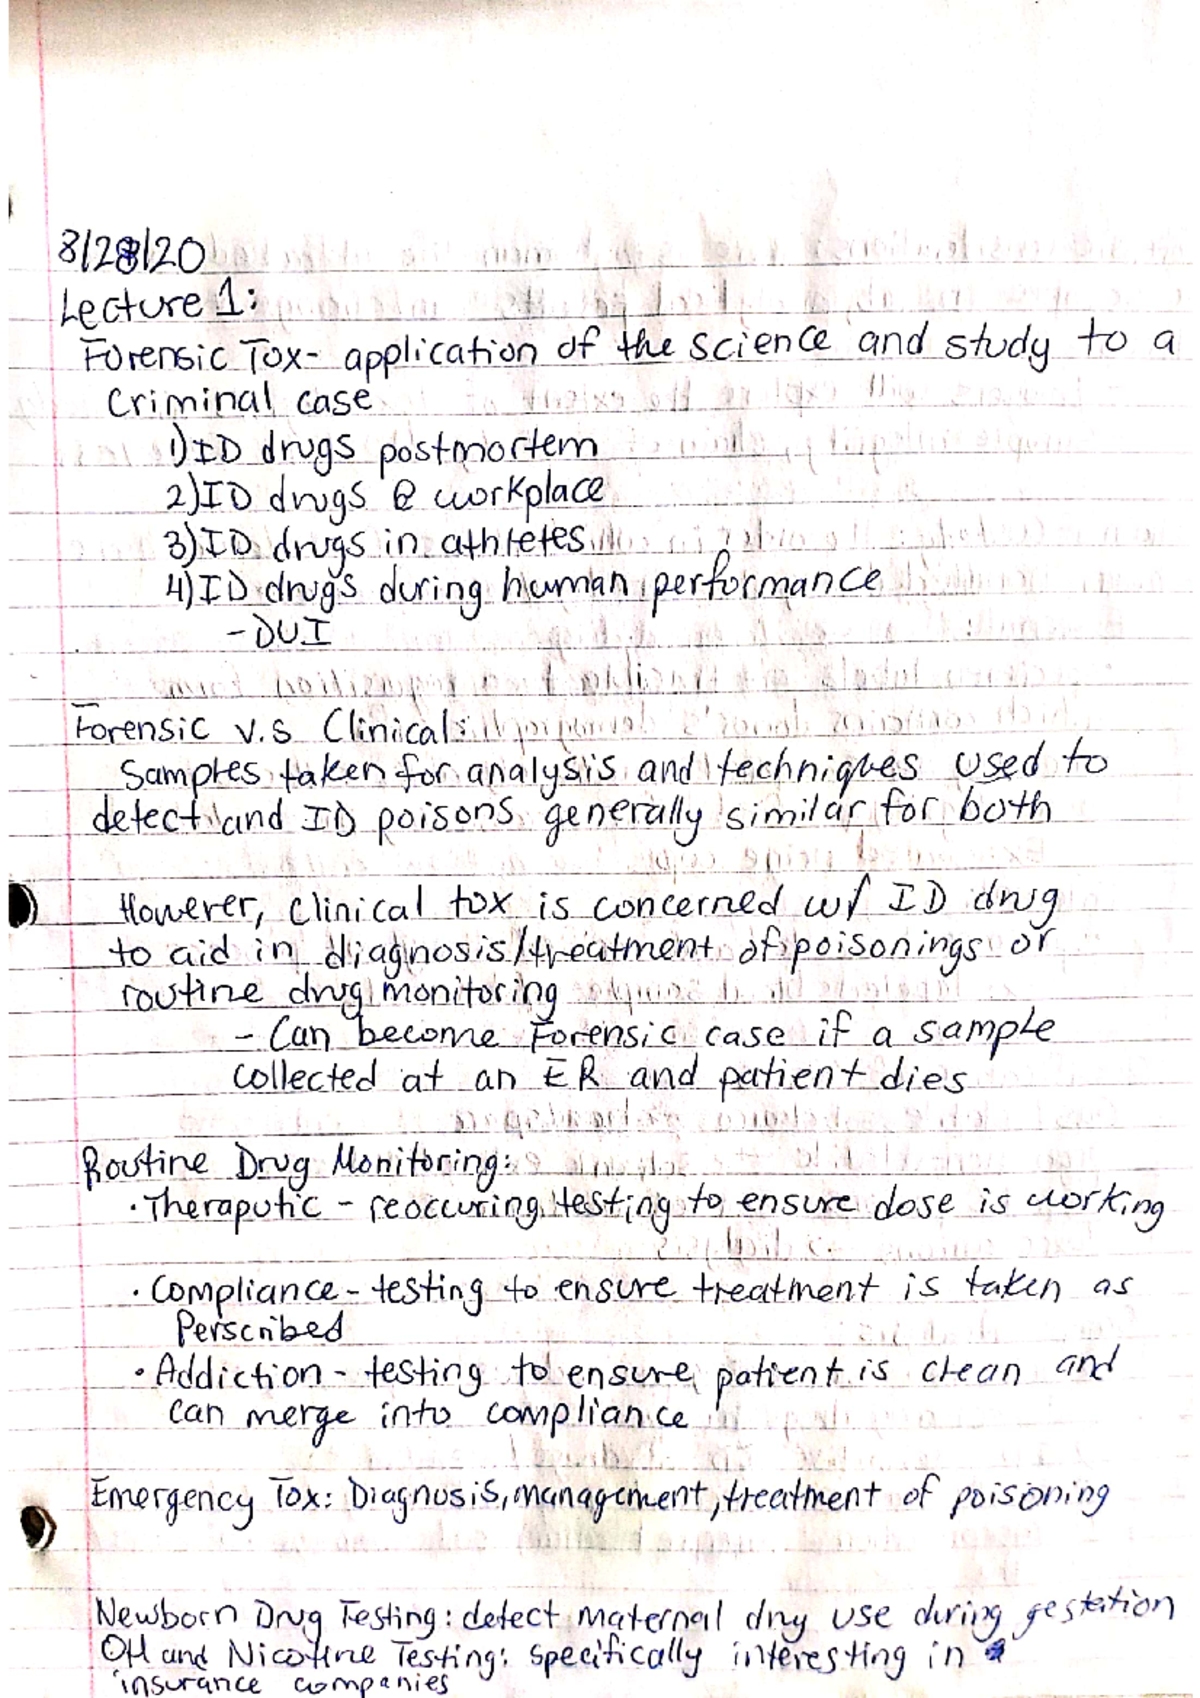 8/28/20
Lecture 1:
Forensic Tox- application of the science and study to a
Criminal case
1) ID drugs postmortem
2) ID drugs @ workplace
3) ID drugs in athletes
4) ID drugs during human performance
- DUI
Forensic v.s Clinical:
Samples taken for analysis and techniques used to
detect and ID poisons generally similar for both
However, clinical tox is concerned w/ ID drug
to aid in diagnosis/treatment of poisonings or
routine drug monitoring
- Can become Forensic case if a sample
collected at an ER and patient dies
Routine Drug Monitoring:
• Theraputic - reoccuring testing to ensure dose is working
• Compliance - testing to ensure treatment is taken as
Perscribed
• Addiction - testing to ensure patient is clean and
can merge into compliance
Emergency Tox: Diagnosis, management, treatment of poisoning
Newborn Drug Testing: detect maternal drug use during gestation
OH and Nicotine Testing: specifically interesting in
insurance companies